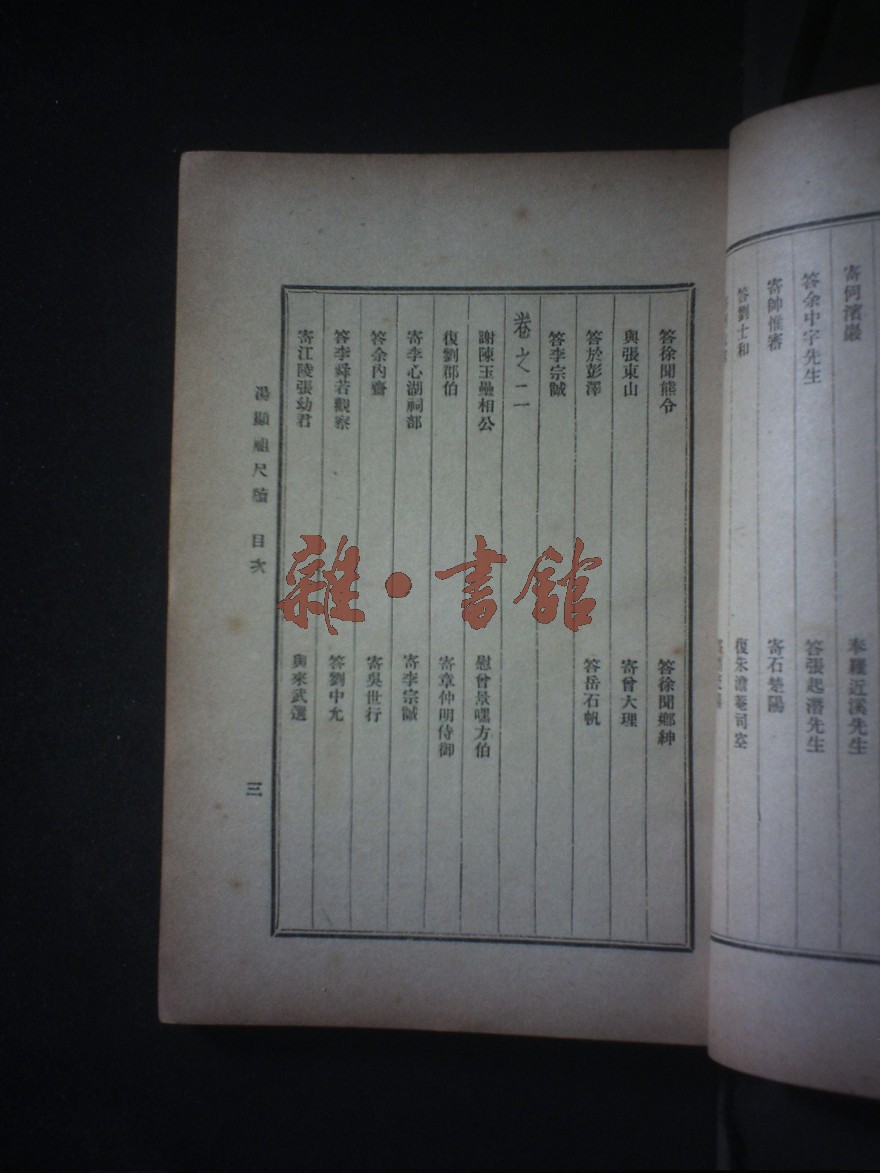 寄何濱巖
奉羅近溪先生
答余中宇先生
答張起潛先生
寄帥惟審
寄石楚陽
答劉士和
復朱澹菴司空
答徐聞熊令
答徐聞鄉紳
與張東山
寄曾大理
答於彭澤
答岳石帆
答李宗誠
卷之二
謝陳玉壘相公
慰曾景嘿方伯
復劉郡伯
寄章仲明侍御
寄李心湖祠部
寄李宗誠
答余內齋
寄吳世行
答李舜若觀察
答劉中允
寄江陵張幼君
與來武選
湯顯祖尺牘 目次
三
雜·書館